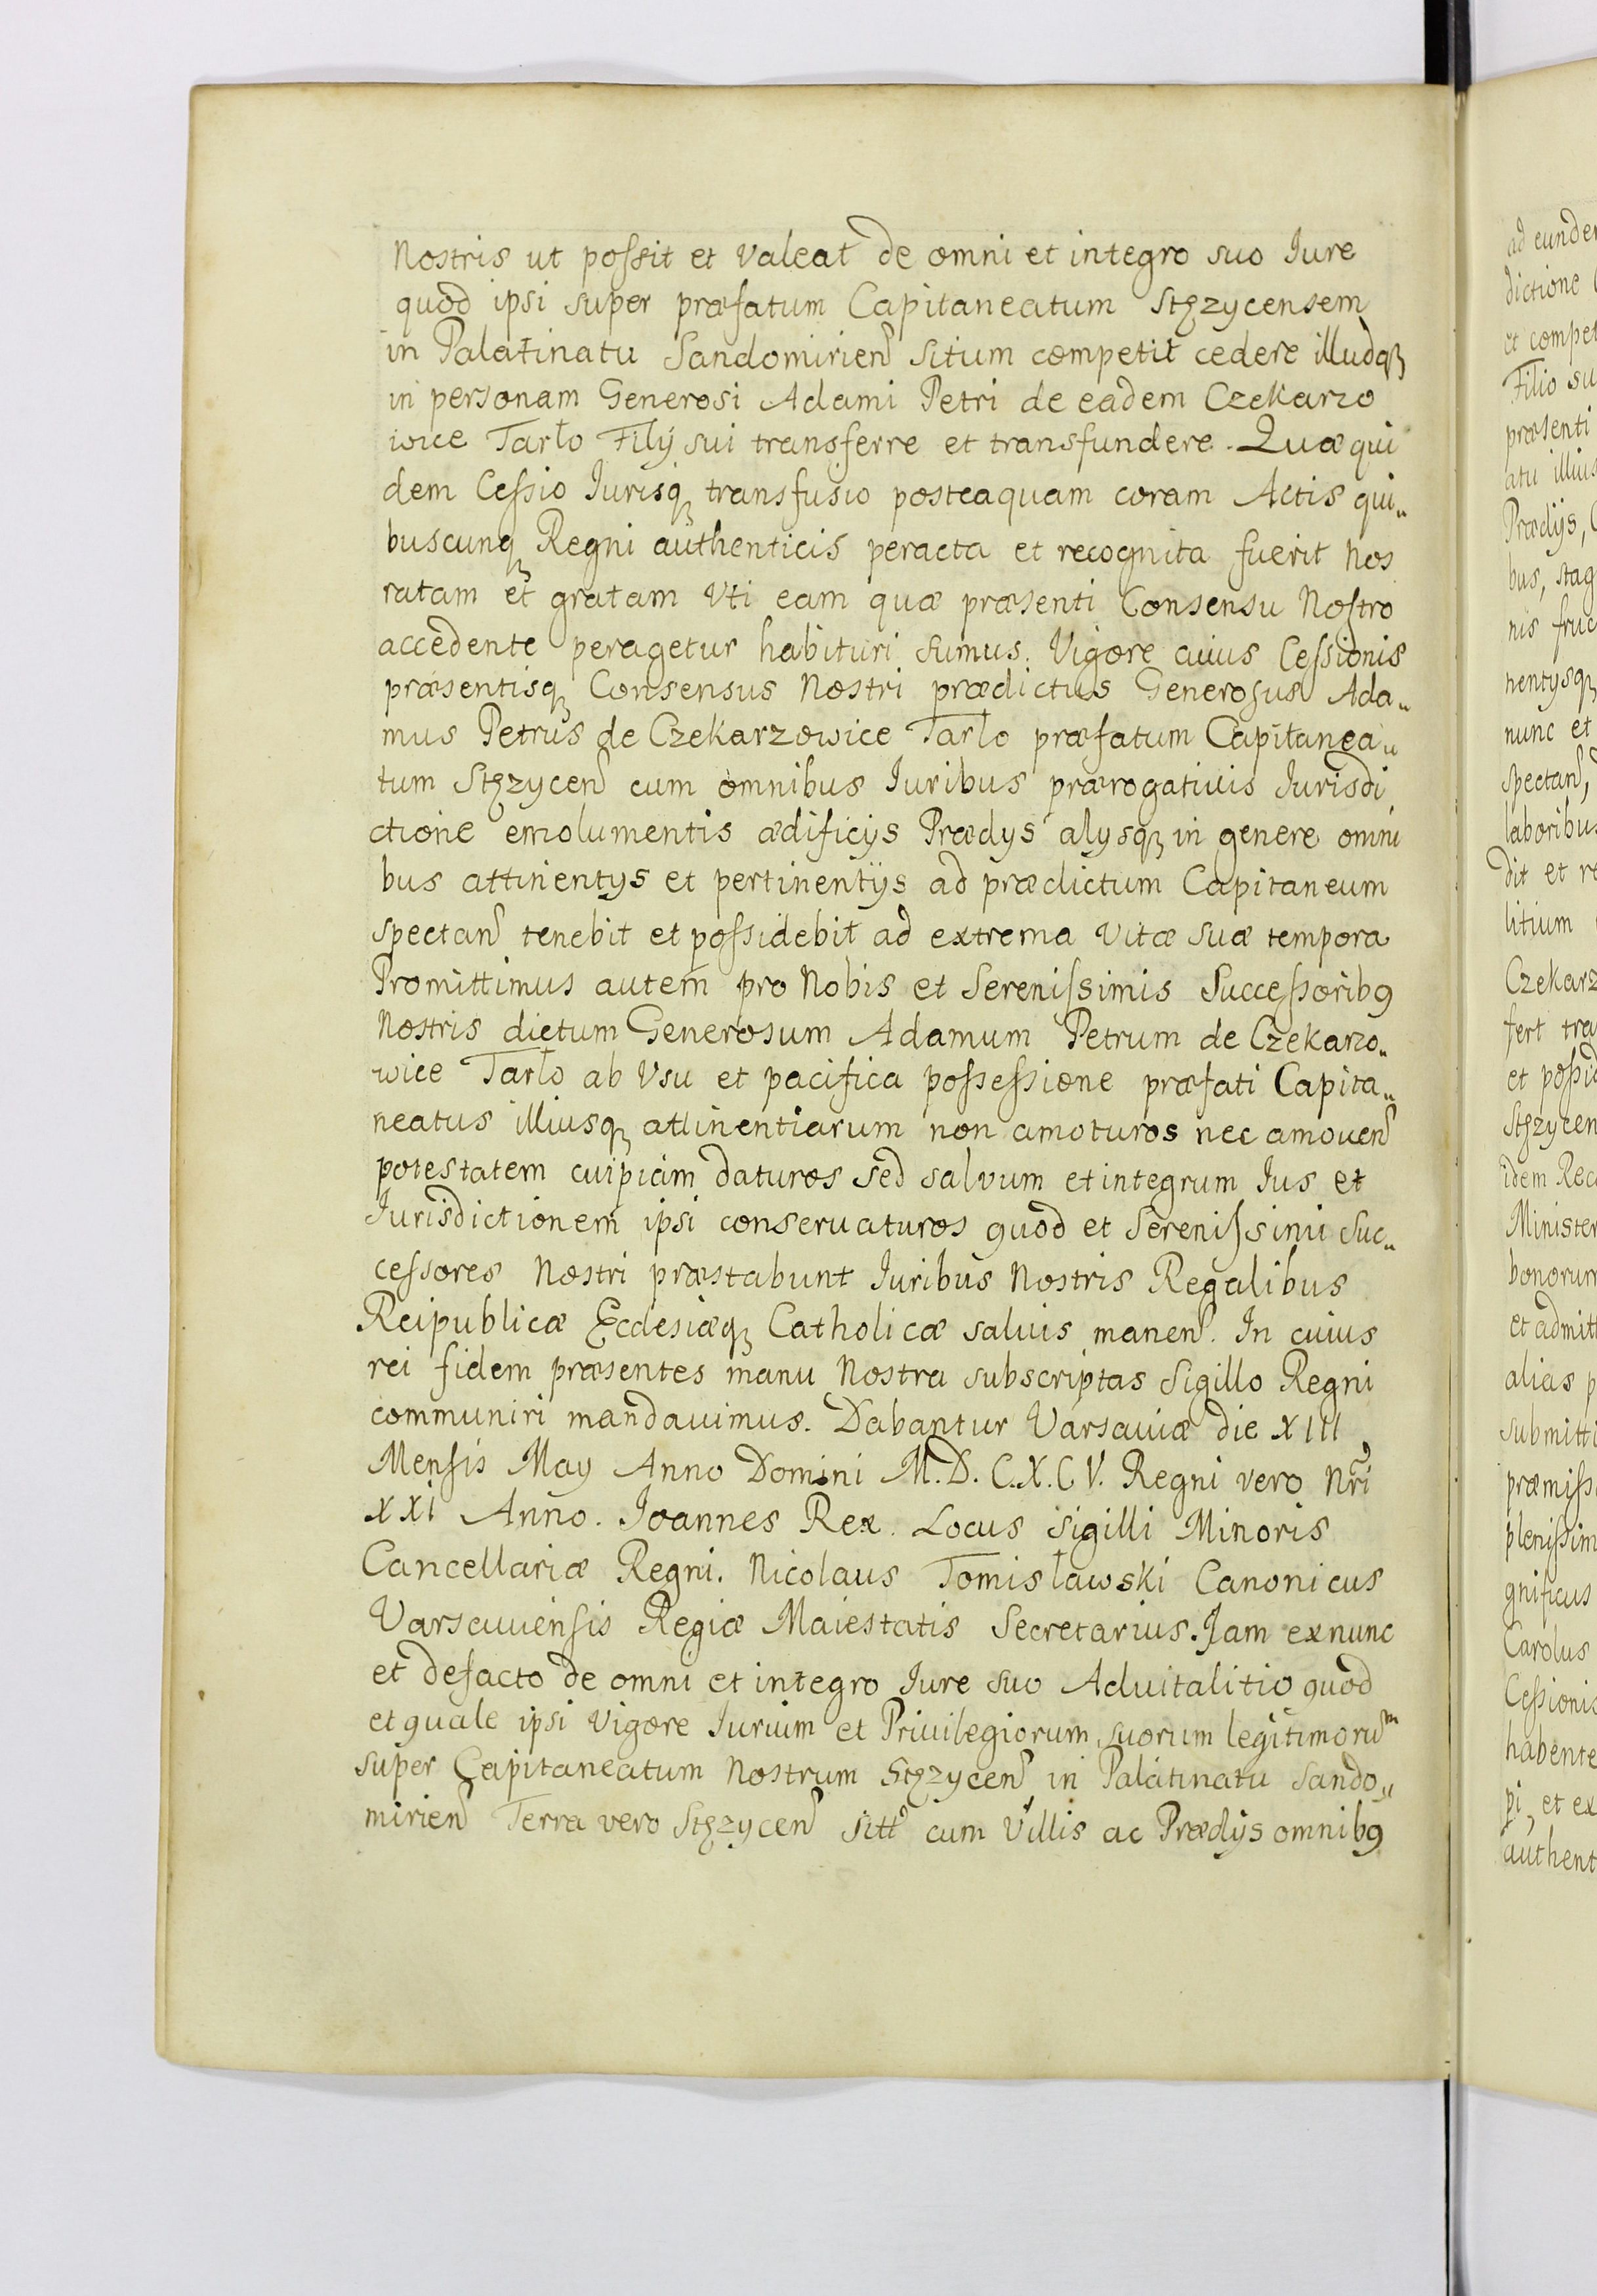 Nostris ut possit et valeat de omni et integro suo Iure
quod ipsi super præfatum Capitaneatum Stęzycensem
in Palatinatu Sandomirien̄ situm competit cedere illudqꝫ
in personam Generosi Adami Petri de eadem Czekarzo
wice Tarło Filÿ sui transferre et transfundere. Quæ qui
dem Cessio Iurisqꝫ transfusio posteaquam coram Actis qui„
buscunqꝫ Regni authenticis peracta et recognita fuerit Nos
ratam et gratam Uti eam quæ præsenti Consensu Nostro
accedente peragetur habituri sumus. Vigore cuius Cessionis
præsentisqꝫ Consensus Nostri prædictus Generosus Ada„
mus Petrus de Czekarzowice Tarło præfatum Capitanea„
tum Stęzycen̄ cum omnibus Iuribus prærogativis Iurisdi
ctione emolumentis ædificÿs Prædys alysqꝫ in genere omni
bus attinentÿs et pertinentÿs ad prædictum Capitaneum
spectan̄ tenebit et possidebit ad extrema vitæ suæ tempora
Promittimus autem pro Nobis et Serenissimis Successorib9
Nostris dictum Generosum Adamum Petrum de Czekarzo„
wice Tarło ab Usu et pacifica possessione præfati Capita„
neatus illiusqꝫ attinentiarum non amoturos nec amouen̄
potestatem cuipiam daturos sed salvum et integrum Ius et
Iurisdictionem ipsi conseruaturos quod et Serenissimi Suc„
cessores Nostri præstabunt Iuribus Nostris Regalibus
Reipublicæ Ecclesiæqꝫ Catholicæ saluis manen̄. In cuius
rei fidem præsentes manu Nostra subscriptas Sigillo Regni
communiri mandauimus. Dabantur Varsauiæ die XIII
Mensis May Anno Domini M.D.C.X.C.V. Regni vero Nr̄i
XXI Anno. Ioannes Rex. Locus Sigilli Minoris
Cancellariæ Regni. Nicolaus Tomisławski Canonicus
Varsauiensis Regiæ Maiestatis Secretarius. Jam ex nunc
et defacto de omni et integro Iure suo Aduitalitio quod
et quale ipsi Vigore Iurium et Priuilegiorum suorum legitimoruᵐ
super Capitaneatum Nostrum Stęzycen̄ in Palatinatu Sando„
mirien̄ Terra vero Stęzycen̄ sittᵒ cum Villis ac Prædÿs omnib9
ad eunde
dictione
et compet
Filio su
præsenti
atu illius
Prædÿs,
bus, stag
nis fruc
nentysqꝫ
nunc et
spectan̄,
laboribus
dit et re
litium
Czekarz
fert tra
et possid
Stęzycen
idem Rec
Minister
bonorum
et admitt
alias p
submitti
præmiss
plenissim
gnificus
Carolus
Cessionis
habente
pi, et ex
authent